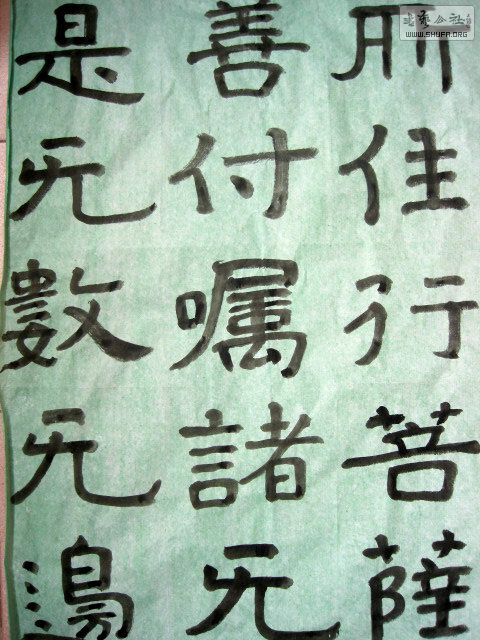 所住行菩薩
善付嘱諸无
是无數无邊
WWW.SHUFA.ORG